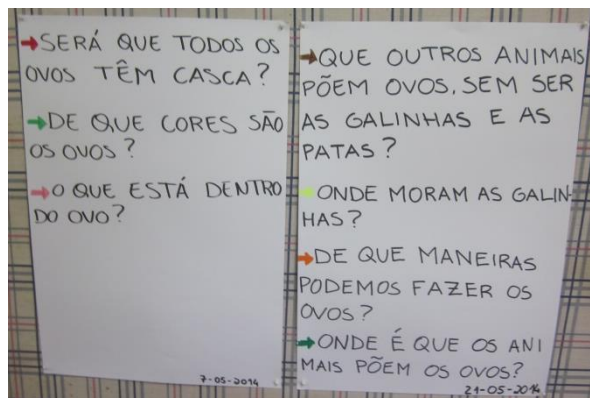 →SERÁ QUE TODOS OS
OVOS TÊM CASCA?
→DE QUE CORES SÃO
OS OVOS?
→O QUE ESTÁ DENTRO
DO OVO?
7-05-2014
→QUE OUTROS ANIMAIS
PÕEM OVOS, SEM SER
AS GALINHAS E AS
PATAS?
→ONDE MORAM AS GALIN-
HAS?
→DE QUE MANEIRAS
PODEMOS FAZER OS
OVOS?
→ONDE É QUE OS ANI
MAIS PÕEM OS OVOS?
21-05-2014